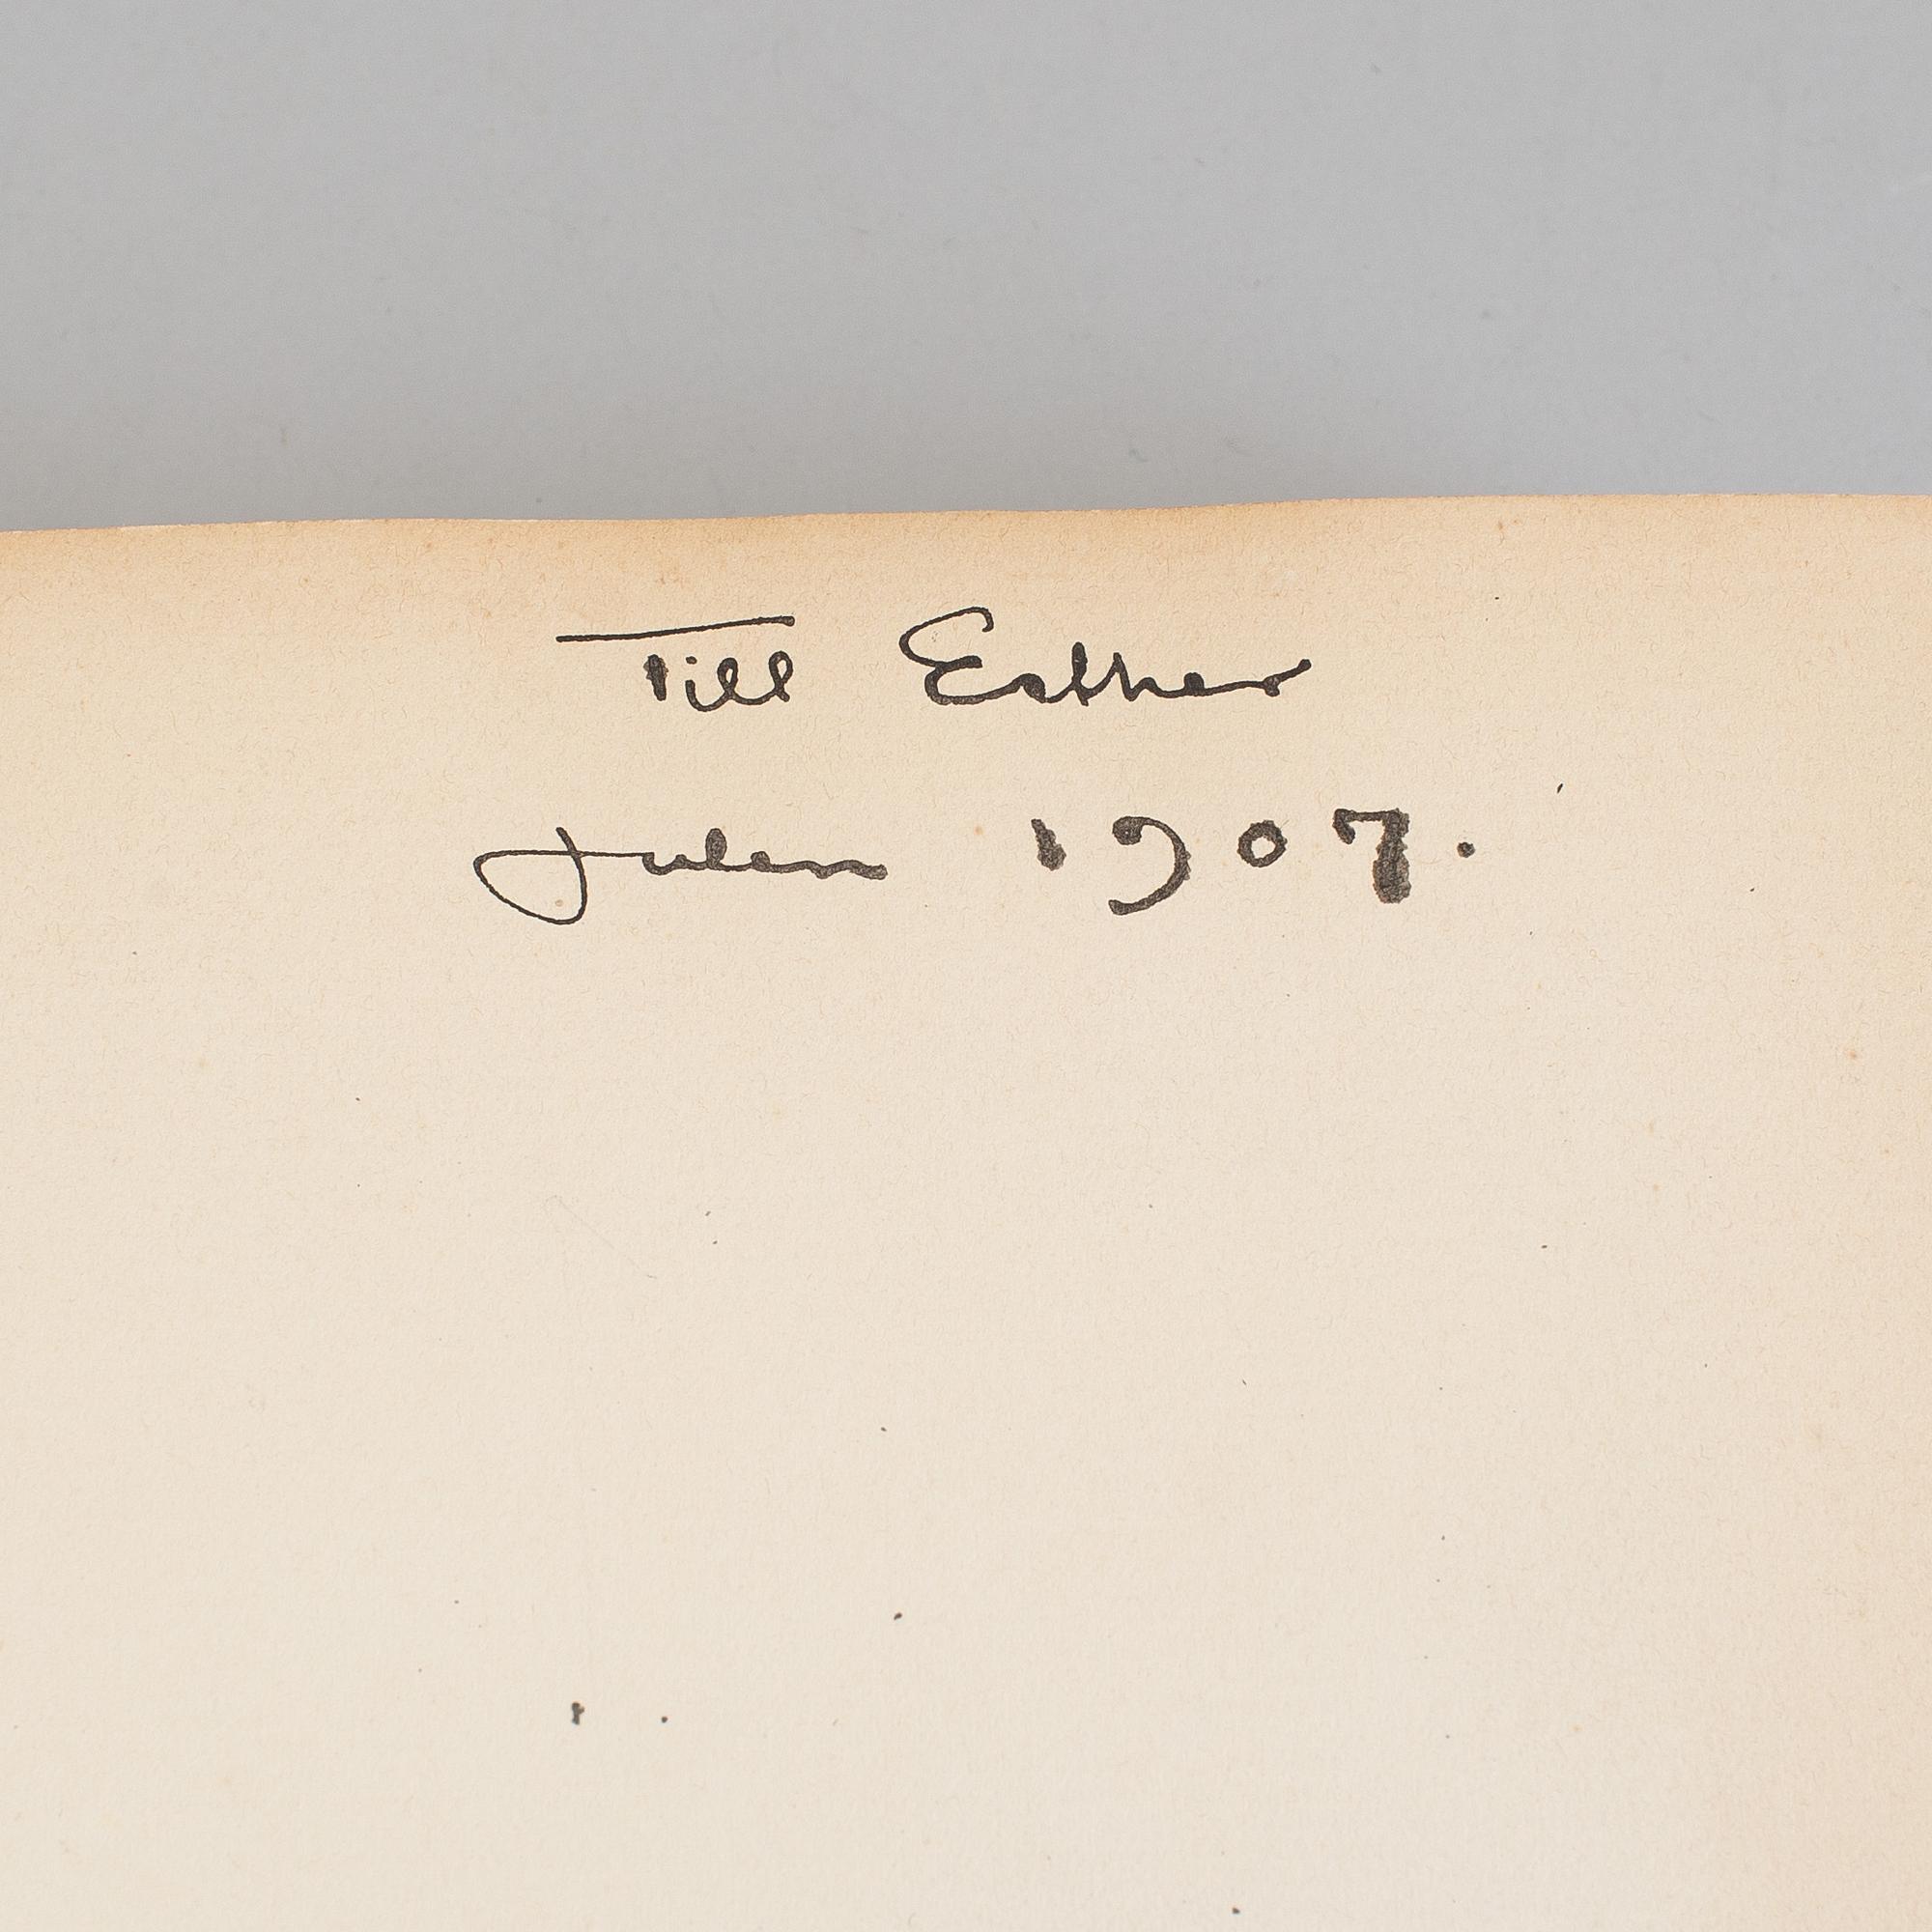 Till Esther
Julen 1907.